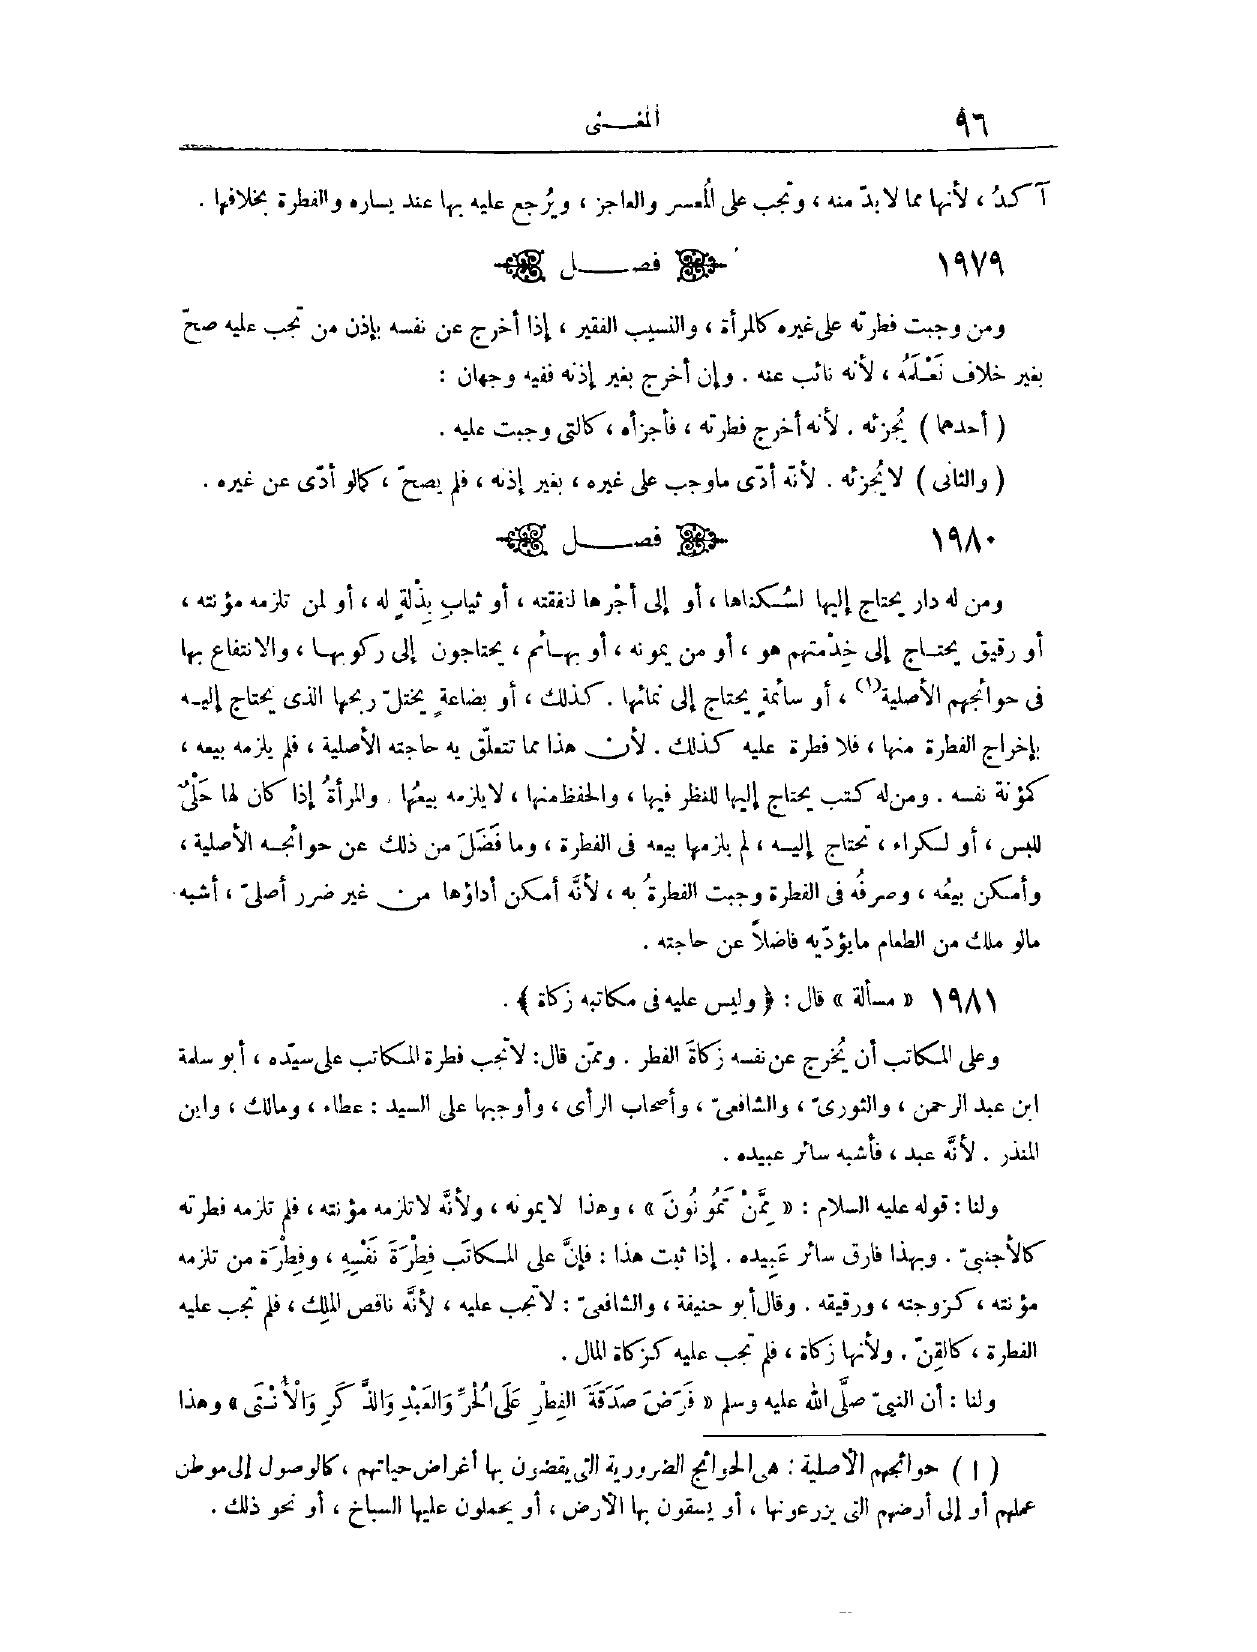 ٩٦
المغـنى
آكدُ ، لأنها مما لا بدّ منه ، وتجب على المُعسر والعاجز ، ويُرجع عليه بها عند يساره والفطرة بخلافها .
١٩٧٩ فصـــل
ومن وجبت فطرته على غيره كالمرأة ، والنسيب الفقير ، إذا أخرج عن نفسه بإذن من تجب عليه صحّ
بغير خلاف نَعْـلَمُه ، لأنه نائب عنه . وإن أخرج بغير إذنه ففيه وجهان :
( أحدهما ) يُجزئه . لأنه أخرج فطرته ، فأجزأه ، كالتى وجبت عليه .
( والثانى ) لا يُجزئه . لأنّه أدّى ماوجب على غيره ، بغير إذنه ، فلم يصحّ ، كمالو أدّى عن غيره .
١٩٨٠ فصـــل
ومن له دار يحتاج إليها لسُـكناها ، أو إلى أجْرها لنفقته ، أو ثيابِ بِذْلةٍ له ، أو لمن تلزمه مؤنته ،
أو رقيق يحتـاج إلى خِدْمتهم هو ، أو من يمونه ، أو بهـائم ، يحتاجون إلى ركوبهـا ، والانتفاع بها
فى حوائجهم الأصلية(١) ، أو سائمةٍ يحتاج إلى نمائها . كذلك ، أو بضاعةٍ يختلّ ربحها الذى يحتاج إليـه
بإخراج الفطرة منها ، فلا فطرة عليه كذلك . لأن هذا مما تتعلّق به حاجته الأصلية ، فلم يلزمه بيعه ،
كمؤنة نفسه . ومن له كتب يحتاج إليها للنظر فيها ، والحفظ منها ، لا يلزمه بيعُها . والمرأةُ إذا كان لها حَلْىٌ
للبس ، أو لـكراء ، تحتاج إليـه ، لم يلزمها بيعه فى الفطرة ، وما فَضَلَ من ذلك عن حوائجـه الأصلية ،
وأمـكن بيعُه ، وصرفُه فى الفطرة وجبت الفطرةُ به ، لأنَّه أمـكن أداؤها من غير ضرر أصلىّ ، أشبه
مالو ملك من الطعام مايؤدّيه فاضلاً عن حاجته .
١٩٨١ « مسألة » قال : ﴿ وليس عليه فى مكاتبه زكاة ﴾ .
وعلى المـكاتب أن يُخرج عن نفسه زكاةَ الفطر . وممّن قال: لا تجب فطرة المـكاتب على سيّده ، أبو سلمة
ابن عبد الرحمن ، والثورىّ ، والشافعىّ ، وأصحاب الرأى ، وأوجبها على السيد : عطاء ، ومالك ، وابن
المنذر . لأنَّه عبد ، فأشبه سائر عبيده .
ولنا : قوله عليه السلام : « مِمَّنْ تَمُونُونَ » ، وهذا لا يمونه ، ولأنَّه لا تلزمه مؤنته ، فلم تلزمه فطرته
كالأجنبىّ . وبهذا فارق سائر عَبِيده . إذا ثبت هذا : فإنَّ على المـكاتَب فِطْرَةَ نَفْسِهِ ، وفِطْرَة من تلزمه
مؤنته ، كـزوجته ، ورقيقه . وقال أبو حنيفة ، والشافعىّ : لا تجب عليه ، لأنَّه ناقص الملِك ، فلم تجب عليه
الفطرة ، كالقِنّ . ولأنها زكاة ، فلم تجب عليه كـزكاة المال .
ولنا : أن النبىّ صلَّى الله عليه وسلم « فَرَضَ صَدَقَةَ الفِطْرِ عَلَى الْحُرِّ وَالعَبْدِ وَالذَّكَرِ وَالْأُنْثَى » وهذا
( ١ ) حوائجهم الأصلية : هى الحوائج الضرورية التى يقضون بها أغراض حياتهم ، كالوصول إلى موطن
عملهم أو إلى أرضهم التى يزرعونها ، أو يسقون بها الأرض ، أو يحملون عليها السباخ ، أو نحو ذلك .